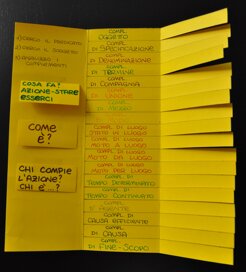 1) CERCO IL PREDICATO
2) CERCO IL SOGGETTO
3) ANALIZZO I
COMPLEMENTI
COSA FA?
AZIONE-STARE
ESSERCI
COME
È?
CHI COMPIE
L'AZIONE?
CHI È...?
COMPL.
OGGETTO
COMPL.
DI SPECIFICAZIONE
COMPL.
DI DENOMINAZIONE
COMPL.
DI TERMINE
COMPL.
DI COMPAGNIA
COMPL.
COMPL.
DI MEZZO
COMPL. DI LUOGO
STATO IN LUOGO
COMPL. DI LUOGO
MOTO A LUOGO
COMPL. DI LUOGO
MOTO DA LUOGO
COMPL. DI LUOGO
MOTO PER LUOGO
COMPL. DI
TEMPO DETERMINATO
COMPL. DI
TEMPO CONTINUATO
COMPL.
D'AGENTE
COMPL. DI
CAUSA EFFICIENTE
COMPL.
DI CAUSA
COMPL.
DI FINE-SCOPO